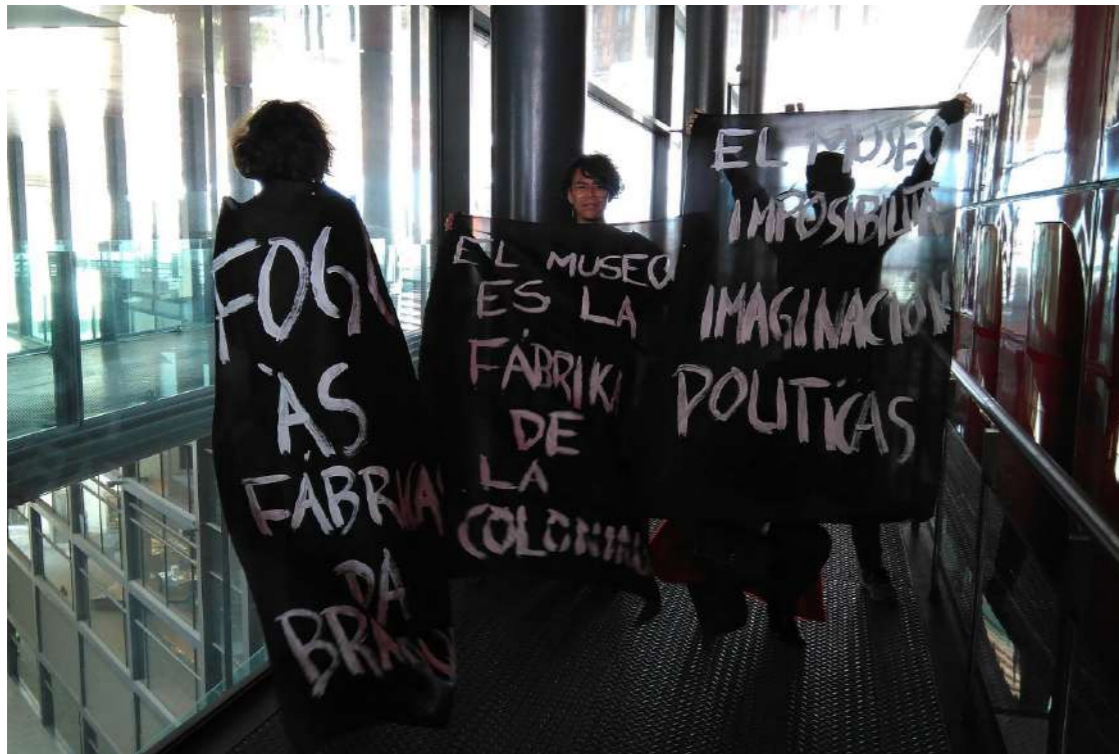 FOGO
ÀS
FÁBRIKAS
DA
EL MUSEO
ES LA
FÁBRIKA
DE
LA
EL MUSEO
IMPOSIBILITA
IMAGINACION
POLITICAS